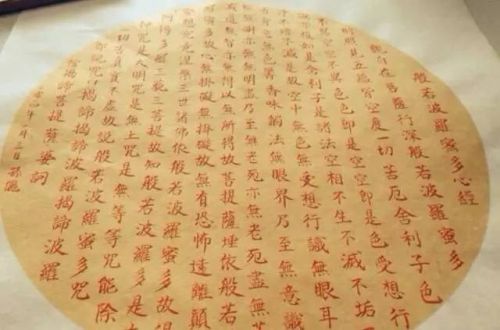 般若波羅蜜多心經
觀自在菩薩行深般若波羅蜜多
時照見五蘊皆空度一切苦厄舍利子色
不異空空不異色色即是空空即是色受想行
識亦復如是舍利子是諸法空相不生不滅不垢
不淨不增不減是故空中無色無受想行識無眼耳
鼻舌身意無色聲香味觸法無眼界乃至無意識
界無無明亦無無明盡乃至無老死亦無老死盡無
集滅道無智亦無得以無所得故菩提薩埵依般若
波羅蜜多故心無掛礙無掛礙故無有恐怖遠離顛
夢想究竟涅槃三世諸佛依般若波羅蜜多故得
阿耨多羅三藐三菩提故知般若波羅蜜多是
神咒是大明咒是無上咒是無等等咒能除
一切苦真實不虛故說般若波羅蜜多咒
即說咒揭諦揭諦波羅揭諦波羅
僧揭諦菩提薩婆訶
月三日